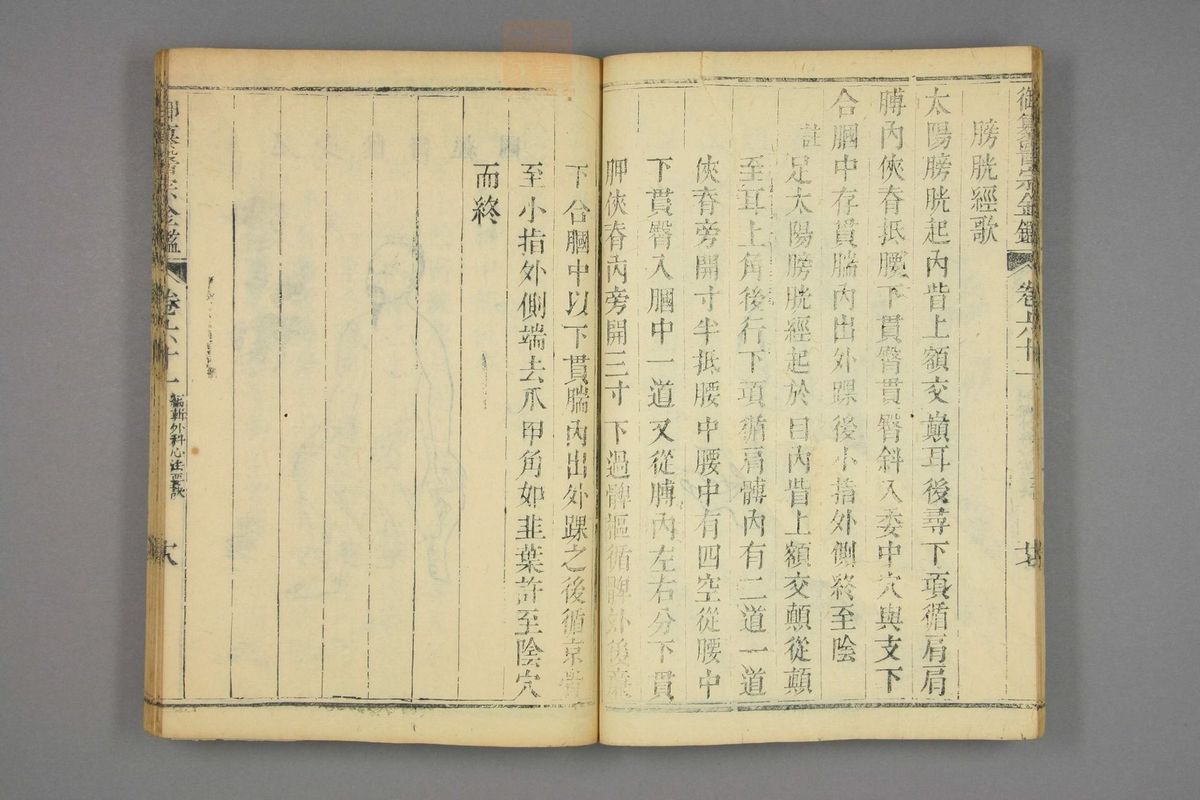 御纂醫宗金鑑 卷六十一
膀胱經歌
太陽膀胱起內眥上額交巔耳後尋下項循肩肩
膊內俠脊抵腰下貫臀貫臀斜入委中穴與支下
合膕中存貫腨內出外踝後小指外側終至陰
註
足太陽膀胱經起於目內眥上額交顛從顛
至耳上角後行下項循肩髆內有二道一道
俠脊旁開寸半抵腰中腰中有四空從腰中
下貫臀入膕中一道又從膊內左右分下貫
胛俠脊內旁開三寸下過髀樞循髀外後廉
下合膕中以下貫腨內出外踝之後循京骨
至小指外側端去爪甲角如韭葉許至陰穴
而終
御纂醫宗金鑑 卷六十一 編輯外科心法要訣